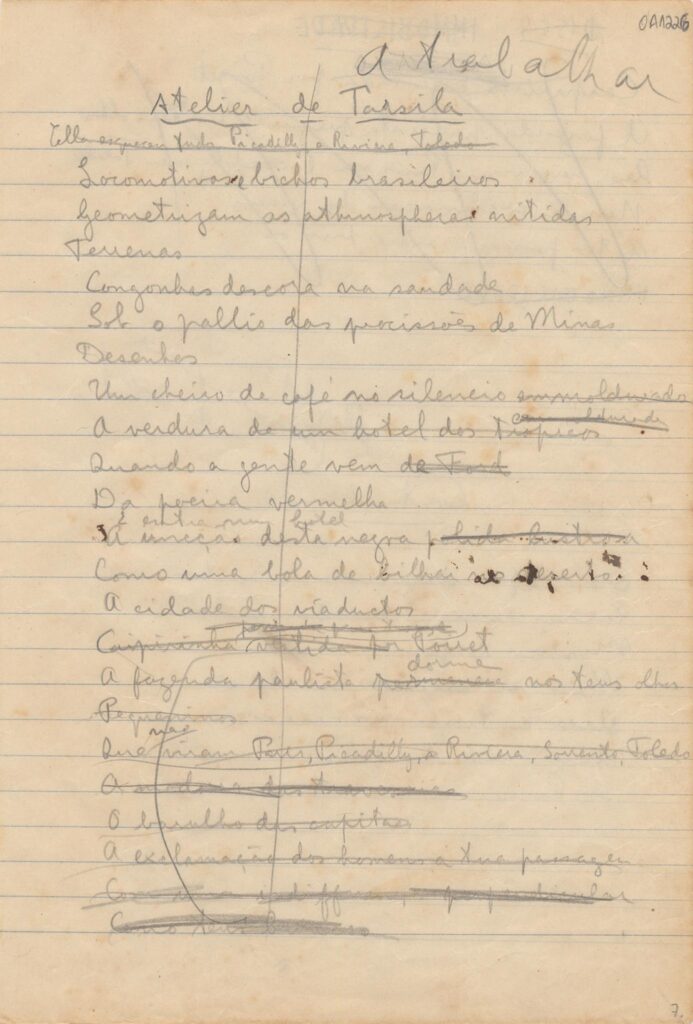 OA1226
a trabalhar
Atelier de Tarsila
tudo Picadilly e Riviera, Toledo
Locomotivas e bichos brasileiros
Geometrizam as athmospheras nitidas
Terrenas
Congonhas descora na saudade
Sob o pallio das procissões de Minas
Desenhos
Um cheiro de café no silencio emmoldurado
emmoldurado
A verdura de um hotel dos tropicos
Quando a gente vem de Ford
Da poeira vermelha
E entra num hotel
A uncção desta negra polida lustrosa
Como uma bola de bilhar no deserto
A cidade dos viaductos
Caipirinha vestida por Poiret
dorme
A fazenda paulista permanece nos teus olhos
Pequeninos
não
Que viram Paris, Picadilly, a Riviera, Sorrento, Toledo
A das travessias
O barulho das capitaes
A exclamação dos homens a tua passagem
Com uma
Como teus
7.